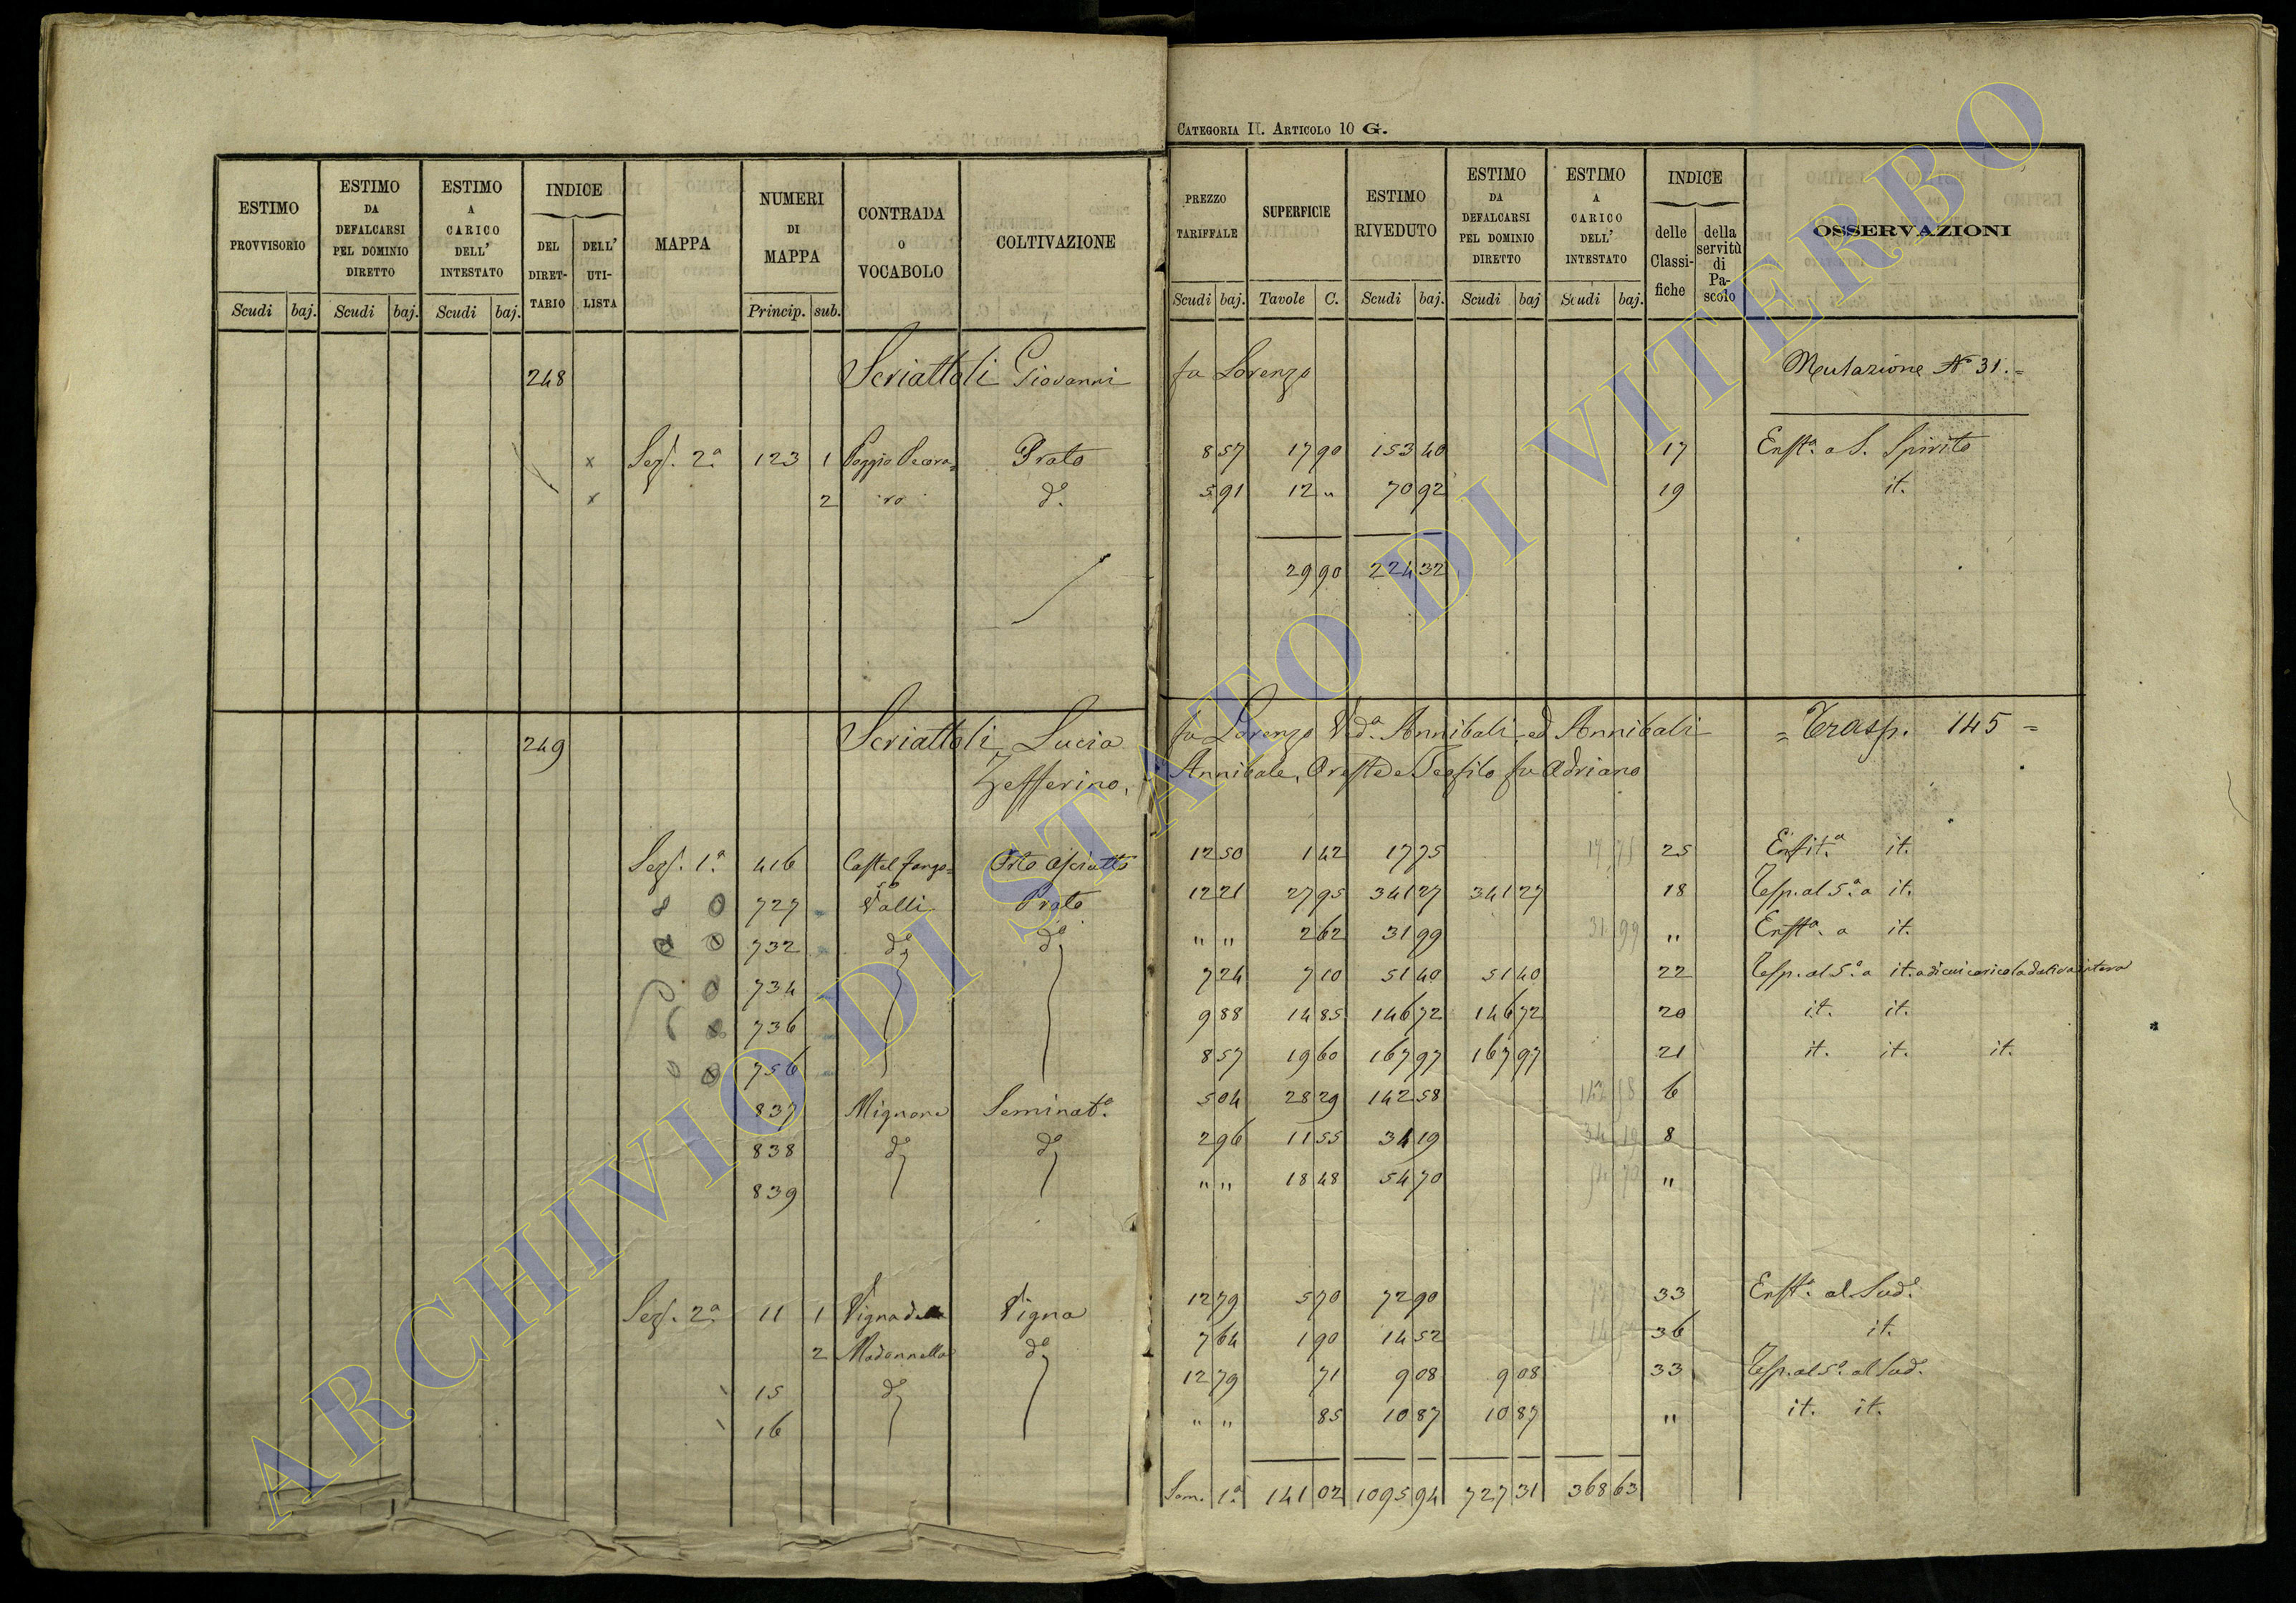 CATEGORIA II. ARTICOLO 10 G.
ESTIMO PROVVISORIO Scudi baj.
ESTIMO DA DEFALCARSI PEL DOMINIO DIRETTO Scudi baj.
ESTIMO A CARICO DELL' INTESTATO Scudi baj.
INDICE DEL DIRET-TARIO DELL' UTI-LISTA
MAPPA
NUMERI DI MAPPA Princip. sub.
CONTRADA O VOCABOLO
COLTIVAZIONE
PREZZO TARIFFALE Scudi baj.
SUPERFICIE Tavole C.
ESTIMO RIVEDUTO Scudi baj.
ESTIMO DA DEFALCARSI PEL DOMINIO DIRETTO Scudi baj
ESTIMO A CARICO DELL' INTESTATO Scudi baj.
INDICE delle Classi-fiche della servitù di Pa-scolo
OSSERVAZIONI
248 Scriattoli Giovanni fu Lorenzo Mutazione N° 31.=
x Sez. 2ª 123 1 Poggio Pecora= Prato 8 57 17 90 153 40 17 Enftª a S. Spirito
x 2 ro d° 5 91 12 " 70 92 19 it.
29 90 224 32
249 Scriattoli, Lucia fu Lorenzo Vdª Annibali, ed Annibali = Trasp. 145 =
Zefferino, Annibale, Oreste e Teofilo fu Adriano
Sez. 1ª 416 Castel farge= Orto Asciutto 12 50 1 42 17 75 17 75 25 Enfitª it.
so
727 Valli Prato 12 21 27 95 341 27 341 27 18 Resp. al 5° a it.
732 d° d° " " 2 62 31 99 31 99 " Enftª a it.
734 7 24 7 10 51 40 51 40 22 Resp. al 5° a it.
736 9 88 14 85 146 72 146 72 20 it. it.
756 8 57 19 60 167 97 167 97 21 it. it. it.
837 Mignone Seminat° 5 04 28 29 142 58 6
838 d° d° 2 96 11 55 34 19 34 19 8
839 " " 18 48 54 70 "
Sez. 2ª 11 1 Vigna della Vigna 12 79 5 70 72 90 33 Enftª al Sud°
2 Madonnella d° 7 64 1 90 14 52 36 it.
15 d° 12 79 71 9 08 9 08 33 Resp. al 5° al Sud°
16 " " 85 10 87 10 87 " it. it.
Som. 1ª 141 02 1095 94 727 31 368 63
ARCHIVIO DI STATO DI VITERBO